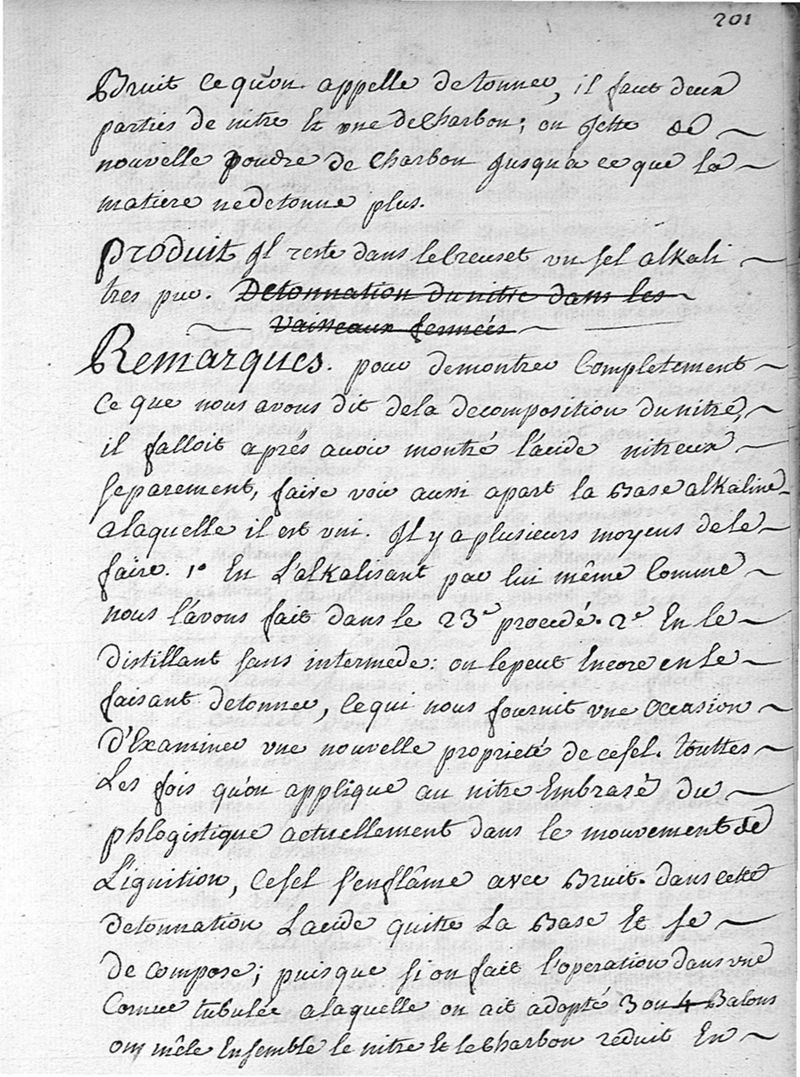 201
Bruit ce qu'on appelle detonner, il faut deux
parties de nitre Et vne de Charbon; on Jette de
nouvelle poudre de Charbon Jusqu'a ce que la
matiere ne detonne plus.
Produit Il reste dans le Creuset vn sel alkali
tres pur. Detonnation du nitre dans les
Vaisseaux fermées
Remarques. pour demontrer Completement
Ce que nous avons dit de la decomposition du nitre,
il falloit aprés avoir montré l'acide nitreux
separement, faire voir aussi apart la Base alkaline
a laquelle il est vni. Il y a plusieurs moyens de le
faire. 1° En L'alkalisant par lui même Comme
nous l'avons fait dans le 23e procedé. 2e En le
distillant sans intermede: on le peut Encore en le
faisant detonner, Ce qui nous fournit vne Occasion
d'Examiner vne nouvelle proprieté de ce sel. touttes
Les fois qu'on applique au nitre Embrasé du
phlogistique actuellement dans le mouvement de
L'ignition, Ce sel s'enflâme avec Bruit. dans cette
detonnation L'acide quitte La Base Et se
de compose; puisque si on fait l'operation dans vne
Cornue tubulée a laquelle on ait adapté 3 ou 4 Balons
on mêle Ensemble le nitre Et le Charbon reduit En